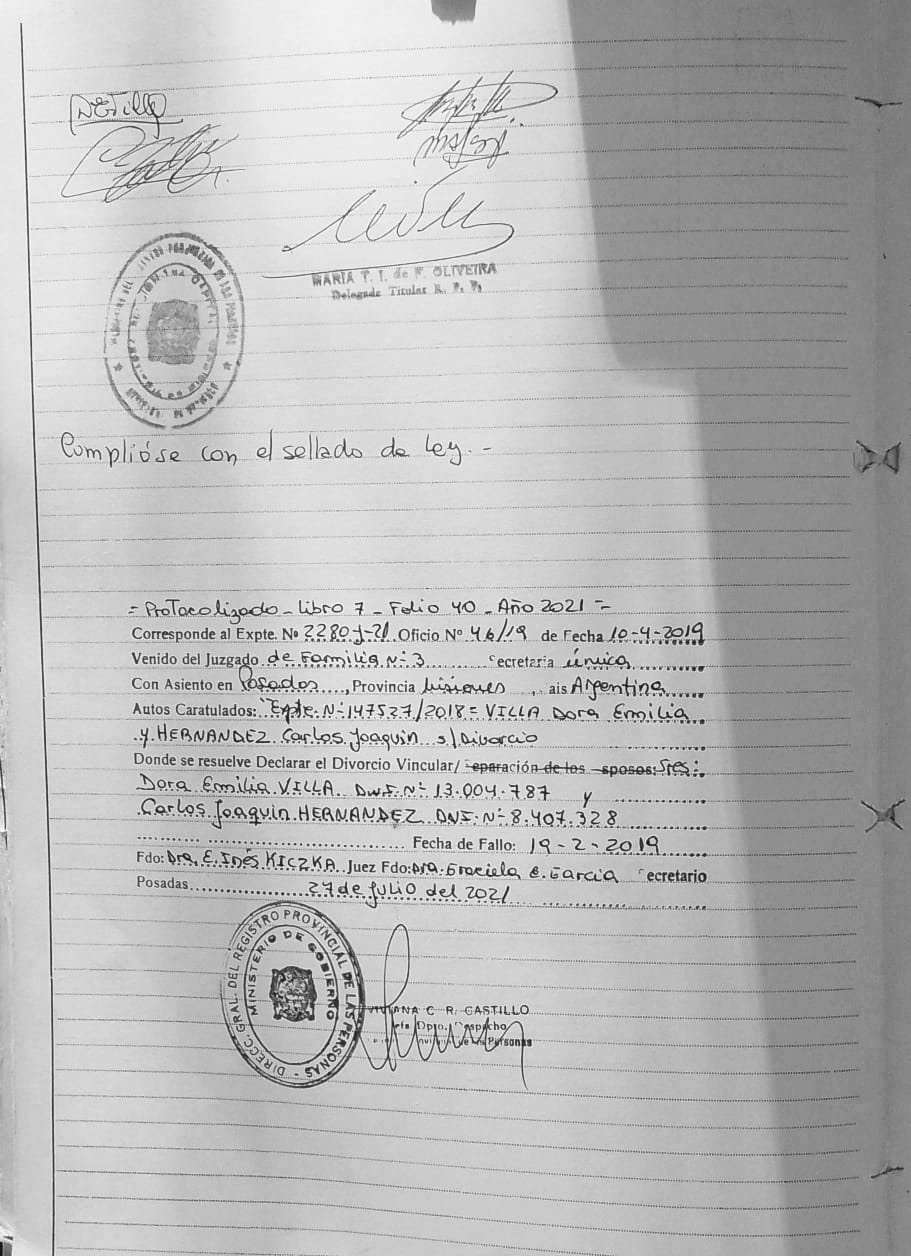 DEVilla
MARIA T. I. de F. OLIVEIRA
Delegada Titular R. P. P.
Cumplióse con el sellado de Ley.-
= Protocolizado - Libro 7 - Folio 40 - Año 2021 =
Corresponde al Expte. No 2280-J-21 Oficio Nº 46/19 de Fecha 10-4-2019
Venido del Juzgado de Familia Nº 3 ecretaria única
Con Asiento en Posadas, Provincia Misiones, ais Argentina
Autos Caratulados: "Expte. Nº 147527/2018 = VILLA Dora Emilia
y HERNANDEZ Carlos Joaquin s/Divorcio
Donde se resuelve Declarar el Divorcio Vincular/ eparación de los sposos: Sres:
Dora Emilia VILLA DNI. Nº 13.004.787 y
Carlos Joaquin HERNANDEZ DNI. Nº 8.407.328
Fecha de Fallo: 19-2-2019
Fdo: Dra. E. Inés KICZKA Juez Fdo: Dra. Graciela E. Garcia ecretario
Posadas 27 de Julio del 2021
DIRECC. GRAL. DEL REGISTRO PROVINCIAL DE LAS PERSONAS -
MINISTERIO DE GOBIERNO
VIVIANA C. R. CASTILLO
Jefa Dpto. Despacho
Personas